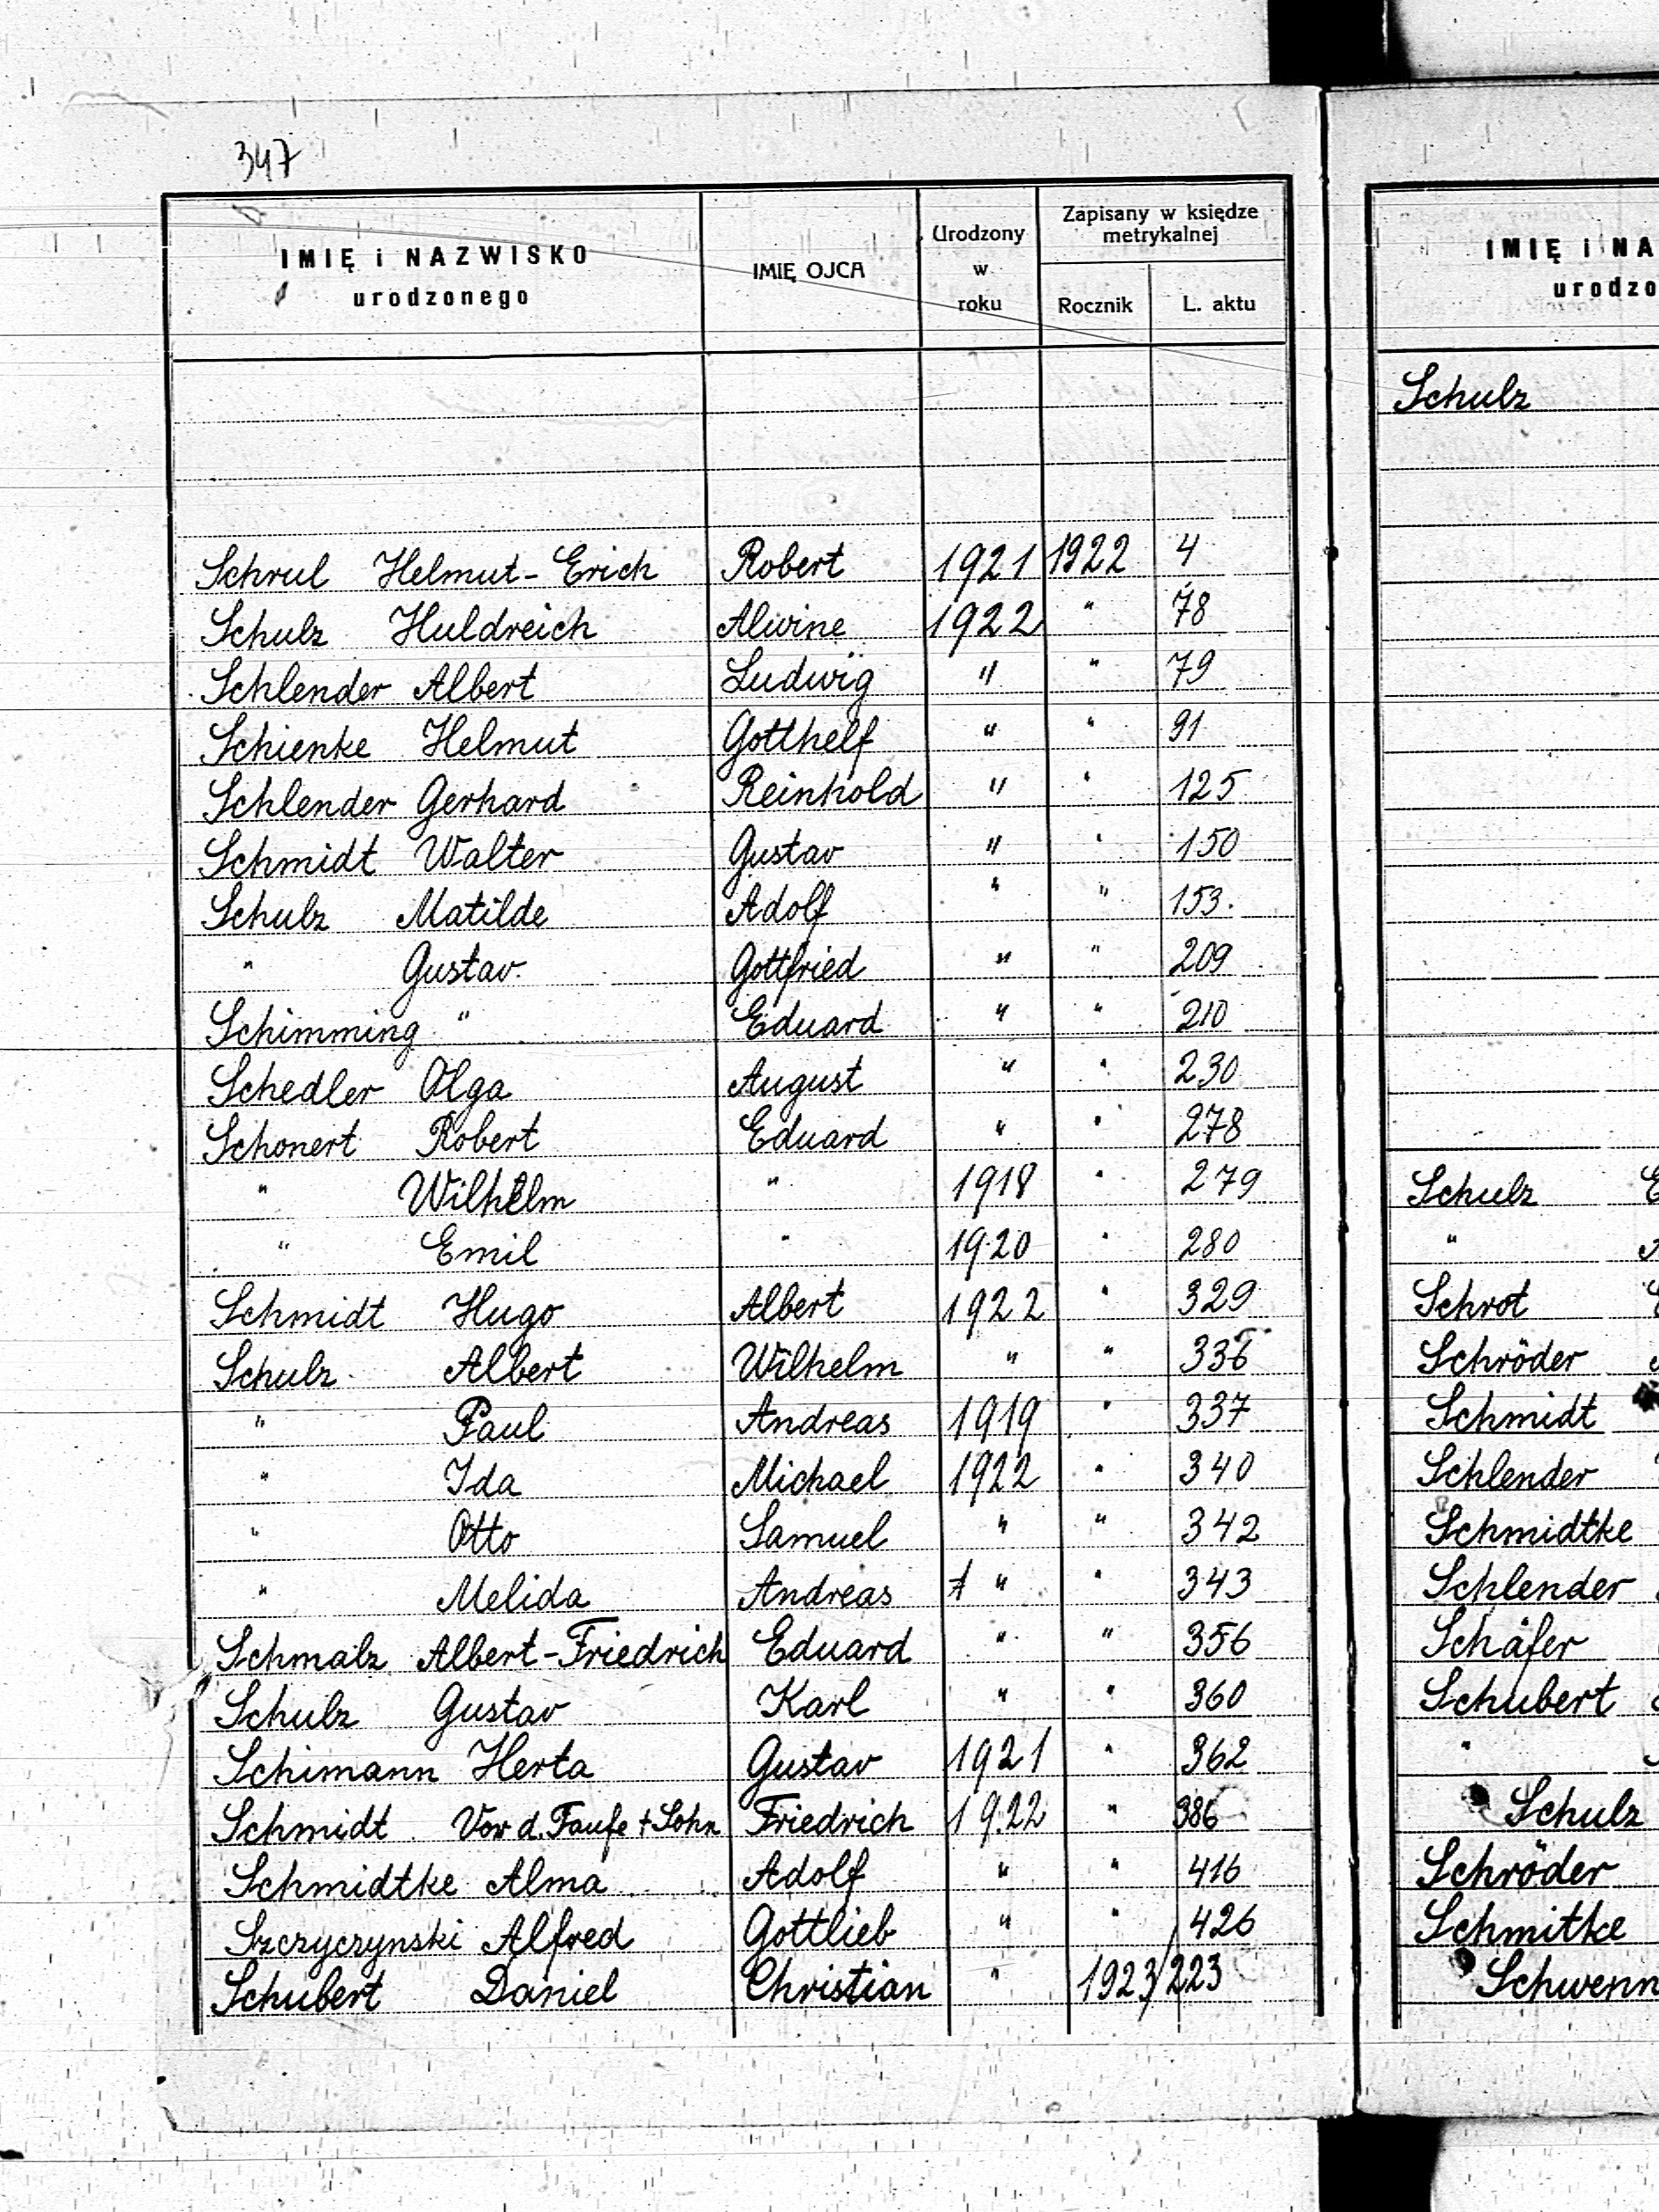 347
IMIĘ i NAZWISKO urodzonego IMIĘ OJCA Urodzony w roku Zapisany w księdze metrykalnej Rocznik L. aktu
Schrul Helmut-Erich Robert 1921 1922 4
Schulz Huldreich Alwine 1922 " 78
Schlender Albert Ludwig " " 79
Schienke Helmut Gotthelf " " 91
Schlender Gerhard Reinhold " " 125
Schmidt Walter Gustav " " 150
Schulz Matilde Adolf " " 153.
" Gustav Gottfried " " 209
Schimming " Eduard " " 210
Schedler Olga August " " 230
Schonert Robert Eduard " " 278
" Wilhelm " 1918 " 279
" Emil " 1920 " 280
Schmidt Hugo Albert 1922 " 329
Schulz Albert Wilhelm " " 336
" Paul Andreas 1919 " 337
" Ida Michael 1922 " 340
" Otto Samuel " " 342
" Melida Andreas " " 343
Schmalz Albert-Friedrich Eduard " " 356
Schulz Gustav Karl " " 360
Schimann Herta Gustav 1921 " 362
Schmidt Vor d. Taufe + Sohn Friedrich 1922 " 386
Schmidtke Alma Adolf " " 416
Szczyczynski Alfred Gottlieb " " 426
Schubert Daniel Christian " 1923/223
IMIĘ i NA
urodzo
Schulz
Schulz E
"
Schrot
Schröder
Schmidt
Schlender
Schmidtke
Schlender
Schäfer
Schubert
"
Schulz
Schröder
Schmitke
Schwenn